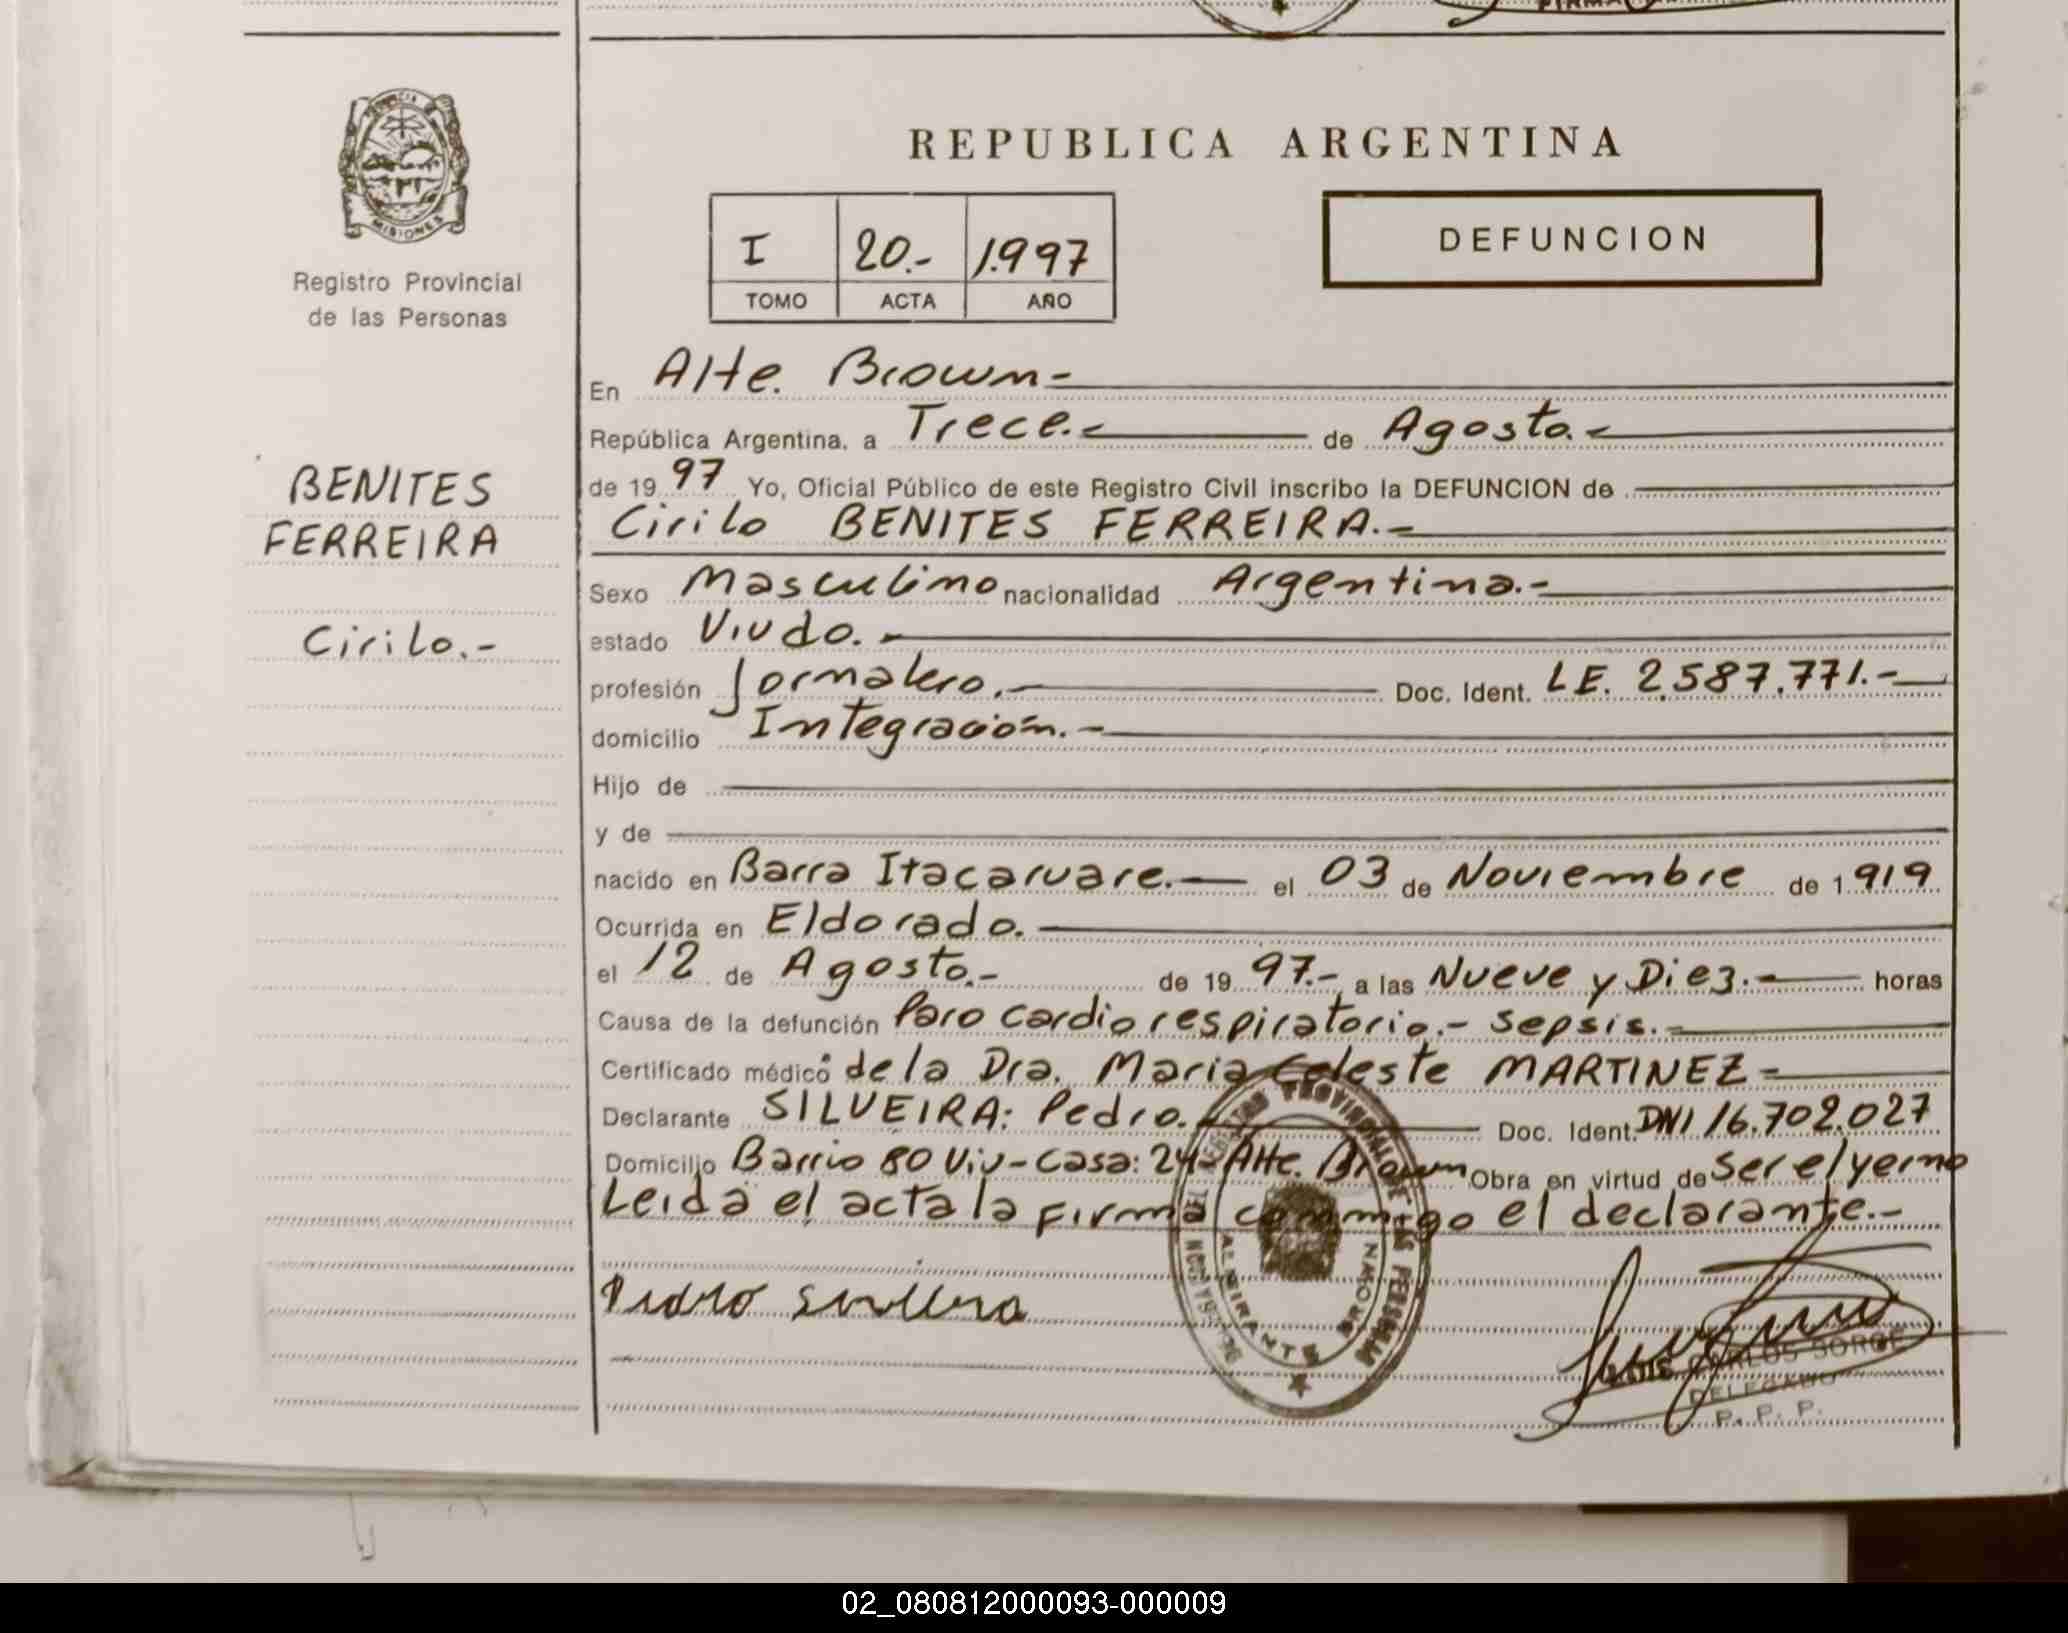 MISIONES
Registro Provincial
de las Personas
BENITES
FERREIRA
Cirilo.-
REPUBLICA ARGENTINA
I 20.- 1.997
TOMO ACTA AÑO
DEFUNCION
En Alte. Brown-
República Argentina, a Trece.- de Agosto.-
de 19 97 Yo, Oficial Público de este Registro Civil inscribo la DEFUNCION de
Cirilo BENITES FERREIRA.-
Sexo Masculino nacionalidad Argentina.-
estado Viudo.-
profesión Jornalero.- Doc. Ident. LE. 2.587.771.-
domicilio Integración.-
Hijo de
y de
nacido en Barra Itacaruare.- el 03 de Noviembre de 1 919
Ocurrida en Eldorado.
el 12 de Agosto.- de 19 97.- a las Nueve y Diez.- horas
Causa de la defunción Paro cardiorespiratorio.- sepsis.-
Certificado médico de la Dra. Maria Celeste MARTINEZ-
Declarante SILVEIRA: Pedro.- Doc. Ident. DNI 16.702.027
Domicilio Barrio 80 Viv-Casa: 24- Alte. Brown Obra en virtud de ser el yerno
Leida el acta la firma conmigo el declarante.-
Pedro Silveira
REGISTRO PROVINCIAL DE LAS PERSONAS
ALMIRANTE BROWN
LUIS CARLOS JORGE
DELEGADO
P. P. P.
02_080812000093-000009